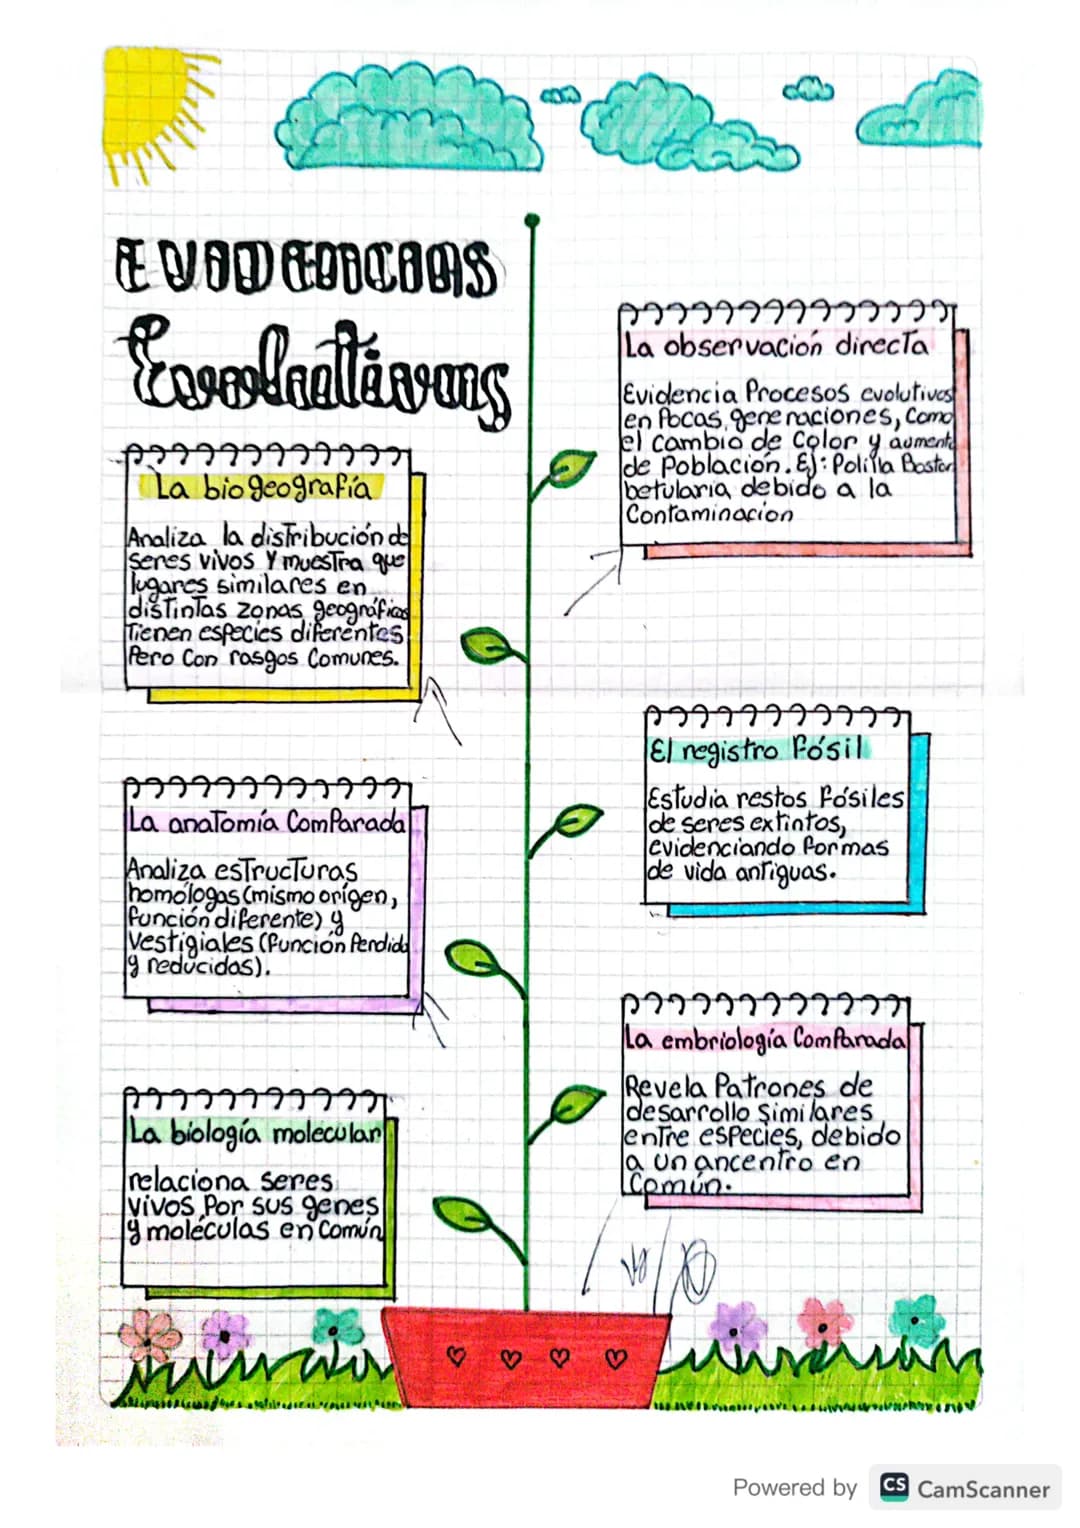 EVIDENCIAS
Evolutivas
La observación directa
Evidencia Procesos evolutivos
en Pocas generaciones, Como
el cambio de Color y aumento
de Población. Ej: Polilla Boston
betularia debido a la
Contaminacion
La biogeografía
Analiza la distribución de
seres vivos Y muestra que
lugares similares en
distintas zonas geográficas
Tienen especies diferentes
Pero Con rasgos Comunes.
El registro fósil
Estudia restos fósiles
de seres extintos,
evidenciando formas
de vida antiguas.
La anatomía Comparada
Analiza estructuras
homólogas (mismo origen,
función diferente) y
Vestigiales (función Perdida
y reducidas).
La embriología Comparada
Revela Patrones de
desarrollo Similares
entre especies, debido
a un ancentro en
Común.
La biología molecular
relaciona seres
vivos Por sus genes
y moléculas en Común
Powered by CS CamScanner